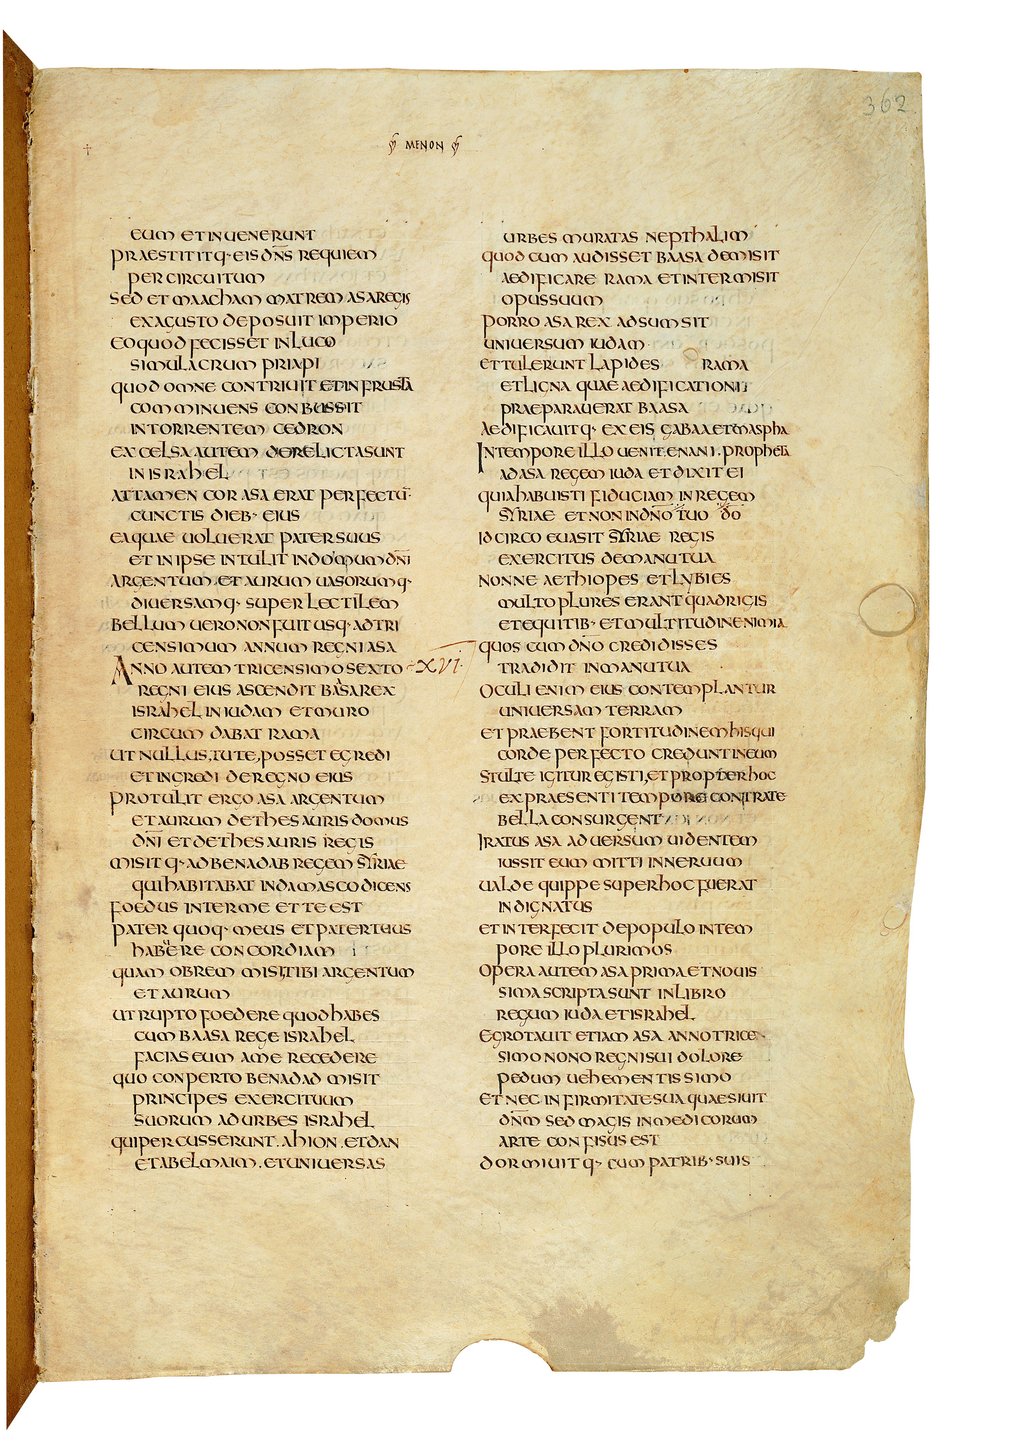 362
MENON
EUM ET INUENERUNT
PRAESTITITQ· EIS DN̄S REQUIEM
PER CIRCUITUM
SED ET MAACHAM MATREM ASA REGIS
EX AGUSTO DEPOSUIT IMPERIO
EO QUOD FECISSET IN LUCO
SIMULACRUM PRIAPI
QUOD OMNE CONTRIUIT ET IN FRUSTA
COMMINUENS CONBUSSIT
IN TORRENTEM CEDRON
EXCELSA AUTEM DERELICTA SUNT
IN ISRAHEL
ATTAMEN COR ASA ERAT PERFECTŪ·
CUNCTIS DIEB· EIUS
EAQUAE UOLUERAT PATER SUUS
ET IN IPSE INTULIT IN DOMUM DN̄I
ARGENTUM ET AURUM UASORUMQ·
DIUERSAMQ· SUPERLECTILEM
BELLUM UERO NON FUIT USQ· AD TRI
CENSIMUM ANNUM REGNI ASA
ANNO AUTEM TRICENSIMO SEXTO XVI·
REGNI EIUS ASCENDIT BAASA REX
ISRAHEL IN IUDAM ET MURO
CIRCUMDABAT RAMA
UT NULLUS, TUTE, POSSET EGREDI
ET INGREDI DE REGNO EIUS
PROTULIT ERGO ASA ARGENTUM
ET AURUM DE THESAURIS DOMUS
DN̄I ET DE THESAURIS REGIS
MISITQ· AD BENADAB REGEM SYRIAE
QUI HABITABAT IN DAMASCO DICENS
FOEDUS INTER ME ET TE EST
PATER QUOQ· MEUS ET PATER TUUS
HABUERE CONCORDIAM
QUAM OBREM MISI TIBI ARGENTUM
ET AURUM
UT RUPTO FOEDERE QUOD HABES
CUM BAASA REGE ISRAHEL
FACIAS EUM A ME RECEDERE
QUO CONPERTO BENADAD MISIT
PRINCIPES EXERCITUUM
SUORUM AD URBES ISRAHEL
QUI PERCUSSERUNT. AHION. ET DAN
ET ABELMAIM. ET UNIUERSAS
URBES MURATAS NEPTHALIM
QUOD CUM AUDISSET BAASA DEMISIT
AEDIFICARE RAMA ET INTERMISIT
OPUS SUUM
PORRO ASA REX ADSUMSIT
UNIUERSUM IUDAM
ET TULERUNT LAPIDES RAMA
ET LIGNA QUAE AEDIFICATIONI
PRAEPARAUERAT BAASA
AEDIFICAUITQ· EX EIS GABAA ET MASPHA
IN TEMPORE ILLO UENIT ENANI. PROPHETA
AD ASA REGEM IUDA ET DIXIT EI
QUIA HABUISTI FIDUCIAM IN REGEM
SYRIAE ET NON IN DN̄O TUO D̄O
IDCIRCO EUASIT SYRIAE REGIS
EXERCITUS DE MANU TUA
NONNE AETHIOPES ET LYBIES
MULTO PLURES ERANT QUADRIGIS
ET EQUITIB· ET MULTITUDINE NIMIA
QUOS CUM DN̄O CREDIDISSES
TRADIDIT IN MANU TUA
OCULI ENIM EIUS CONTEMPLANTUR
UNIUERSAM TERRAM
ET PRAEBENT FORTITUDINEM HIS QUI
CORDE PERFECTO CREDUNT IN EUM
STULTE IGITUR EGISTI, ET PROPTER HOC
EX PRAESENTI TEMPORE CONTRA TE
BELLA CONSURGENT
IRATUS ASA ADUERSUM UIDENTEM
IUSSIT EUM MITTI IN NERUUM
UALDE QUIPPE SUPER HOC FUERAT
INDIGNATUS
ET INTERFECIT DE POPULO IN TEM
PORE ILLO PLURIMOS
OPERA AUTEM ASA PRIMA ET NOUIS
SIMA SCRIPTA SUNT IN LIBRO
REGUM IUDA ET ISRAHEL
EGROTAUIT ETIAM ASA ANNO TRICE
SIMO NONO REGNI SUI DOLORE
PEDUM UEHEMENTISSIMO
ET NEC IN FIRMITATE SUA QUAESIUIT
DN̄M SED MAGIS IN MEDICORUM
ARTE CONFISUS EST
DORMIUITQ· CUM PATRIB· SUIS